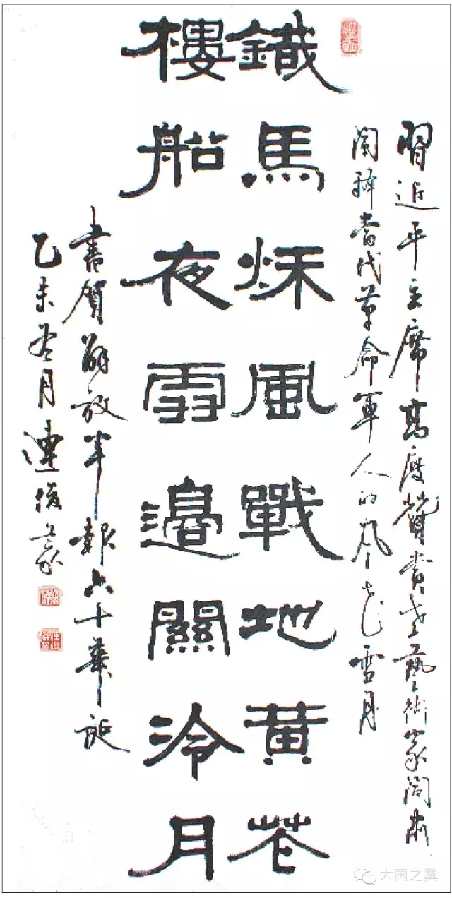 習近平主席高度贊賞老藝術家閻肅
闡釋當代革命軍人的風花雪月
鐵馬秌風戰地黃花
樓船夜雪邊關冷月
書賀解放军報六十華誕
乙未月連
大国之翼